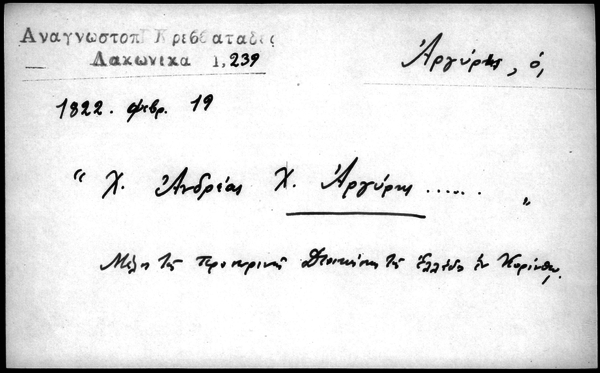 Αναγνωστοπ Κρεββαταδες
Λακωνικα 1,239
Ἀργύρης, ὁ,
1822. φεβρ. 19
"Χ. Ἀνδρέας Χ. Ἀργύρης ...... "
Μέλος τῆς προσωρινῆς Διοικήσεως τῆς Ἑλλάδος ἐν Κορίνθῳ.